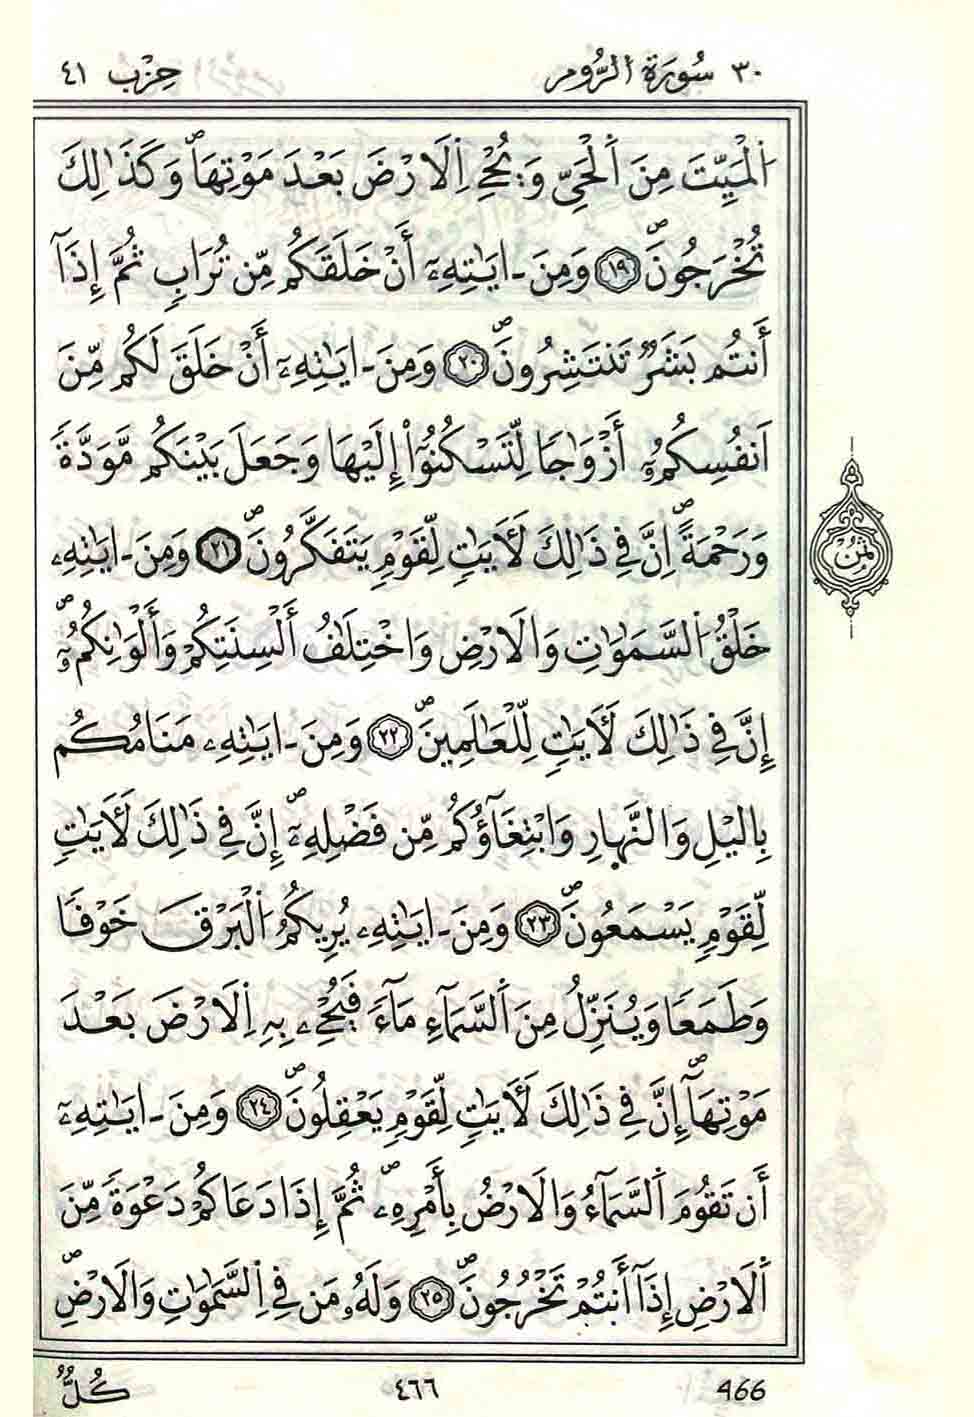 ٣٠ سُورَةُ الرُّومِ حِزْب ٤١
اَ۬لْمَيِّتَ مِنَ اَ۬لْحَيِّ وَيُحْيِ اِ۬لَارْضَ بَعْدَ مَوْتِهَاۖ وَكَذَٰلِكَ
تُخْرَجُونَۖ ١٩ وَمِنَ ـ ايَٰتِهِۦٓ أَنْ خَلَقَكُم مِّن تُرَابٖ ثُمَّ إِذَآ
أَنتُم بَشَرٞ تَنتَشِرُونَۖ ٢٠ وَمِنَ ـ ايَٰتِهِۦٓ أَنْ خَلَقَ لَكُم مِّنَ
اَنفُسِكُمُۥٓ أَزْوَٰجاٗ لِّتَسْكُنُوٓاْ إِلَيْهَا وَجَعَلَ بَيْنَكُم مَّوَدَّةٗ
وَرَحْمَةًۖ اِنَّ فِي ذَٰلِكَ لَأٓيَٰتٖ لِّقَوْمٖ يَتَفَكَّرُونَۖ ٢١ وَمِنَ ـ ايَٰتِهِۦ
خَلْقُ اُ۬لسَّمَٰوَٰتِ وَالَارْضِ وَاخْتِلَٰفُ أَلْسِنَتِكُمْ وَأَلْوَٰنِكُمُۥٓۖ
إِنَّ فِي ذَٰلِكَ لَأٓيَٰتٖ لِّلْعَٰلَمِينَۖ ٢٢ وَمِنَ ـ ايَٰتِهِۦ مَنَامُكُم
بِاليْلِ وَالنَّهارِ وَابْتِغَآؤُكُم مِّن فَضْلِهِۦٓۖ إِنَّ فِي ذَٰلِكَ لَأٓيَٰتٖ
لِّقَوْمٖ يَسْمَعُونَۖ ٢٣ وَمِنَ ـ ايَٰتِهِۦ يُرِيكُمُ اُ۬لْبَرْقَ خَوْفاٗ
وَطَمَعاٗ وَيُنَزِّلُ مِنَ اَ۬لسَّمَآءِ مَآءٗ فَيُحْيِۦ بِهِ اِ۬لَارْضَ بَعْدَ
مَوْتِهَآۖ إِنَّ فِي ذَٰلِكَ لَأٓيَٰتٖ لِّقَوْمٖ يَعْقِلُونَۖ ٢٤ وَمِنَ ـ ايَٰتِهِۦٓ
أَن تَقُومَ اَ۬لسَّمَآءُ وَالَارْضُ بِأَمْرِهِۦۖ ثُمَّ إِذَا دَعَاكُمْ دَعْوَةٗ مِّنَ
اَ۬لَارْضِ إِذَآ أَنتُمْ تَخْرُجُونَۖ ٢٥ وَلَهُۥ مَن فِي اِ۬لسَّمَٰوَٰتِ وَالَارْضِۖ
ثُمُن
كُلّٞ ٤٦٦ 466